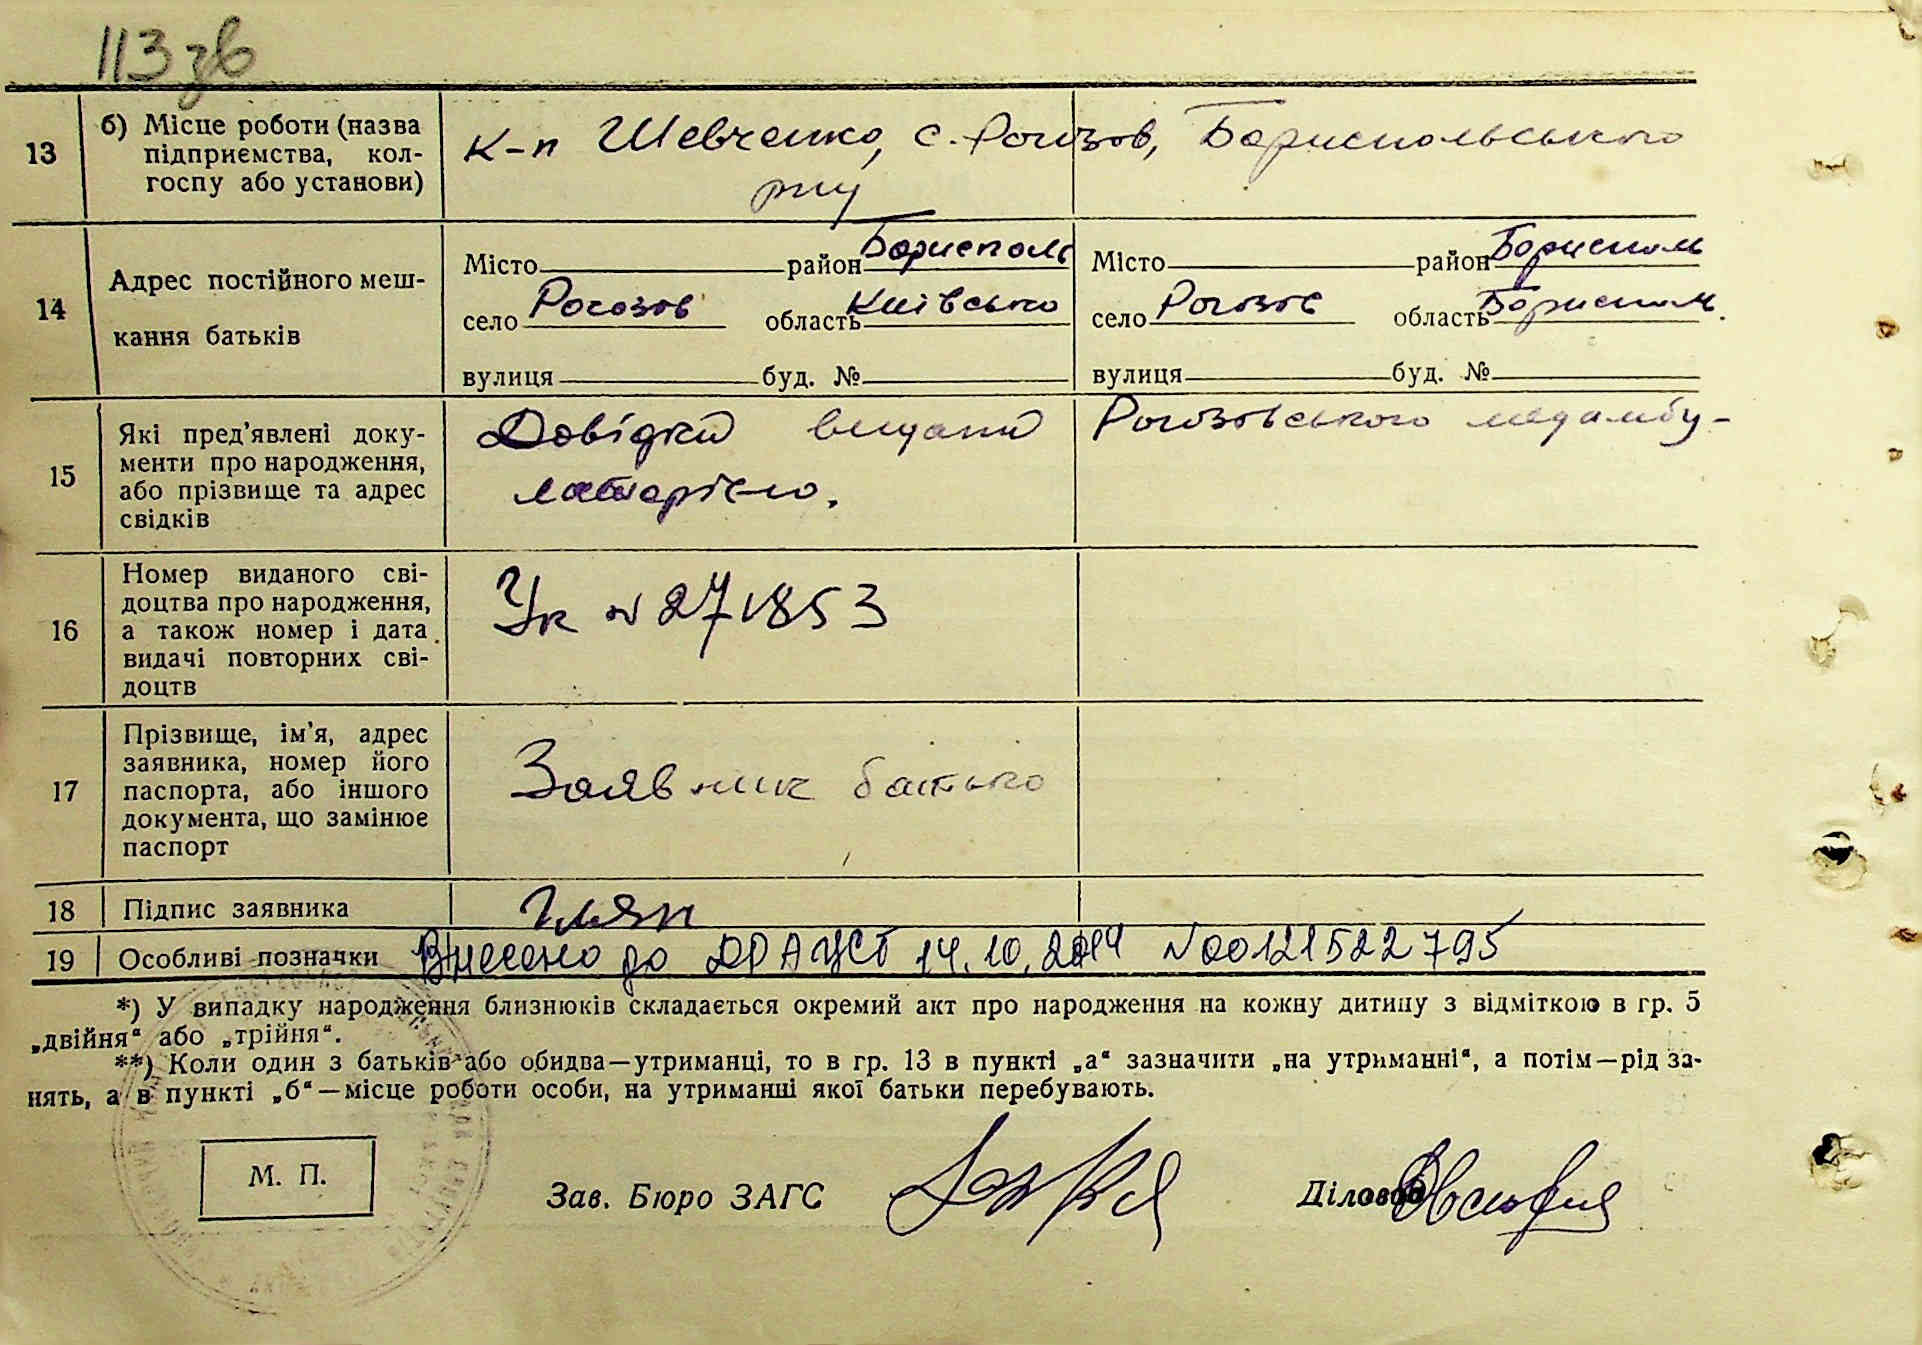 113 зв
13 б) Місце роботи (назва підприємства, кол-госпу або установи) к-п Шевченко, с. Рогозов, Бориспольського р-ну
14 Адрес постійного меш-кання батьків
Місто район Борисполь Місто район Борисполь
село Рогозов область Київсько село Рогозов область Борисполь.
вулиця буд. № вулиця буд. №
15 Які пред'явлені доку-
менти про народження,
або прізвище та адрес
свідків
Довідка видана Рогозовського медамбу-
латорією.
16 Номер виданого сві-
доцтва про народження,
а також номер і дата
видачі повторних сві-
доцтв
Ук № 271853
17 Прізвище, ім'я, адрес
заявника, номер його
паспорта, або іншого
документа, що замінює
паспорт
Заявник батько
18 Підпис заявника
19 Особливі позначки Внесено до ДРАЦСГ 14.10.2014 №00121522795
*) У випадку народження близнюків складається окремий акт про народження на кожну дитину з відміткою в гр. 5
„двійня“ або „трійня“.
**) Коли один з батьків або обидва—утриманці, то в гр. 13 в пункті „а“ зазначити „на утриманні“, а потім—рід за-
нять, а в пункті „б“—місце роботи особи, на утриманні якої батьки перебувають.
М. П.
Зав. Бюро ЗАГС Діловод